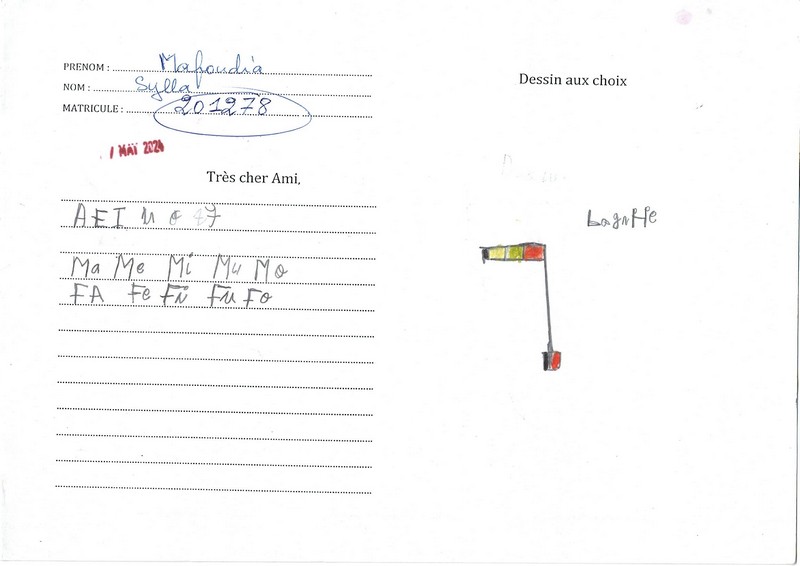 PRENOM : Mafoudia
NOM : Sylla
MATRICULE : 201278
1 MAI 2024
Très cher Ami,
A E I u o
Ma Me Mi Mu Mo
FA Fe Fi Fu Fo
Dessin aux choix